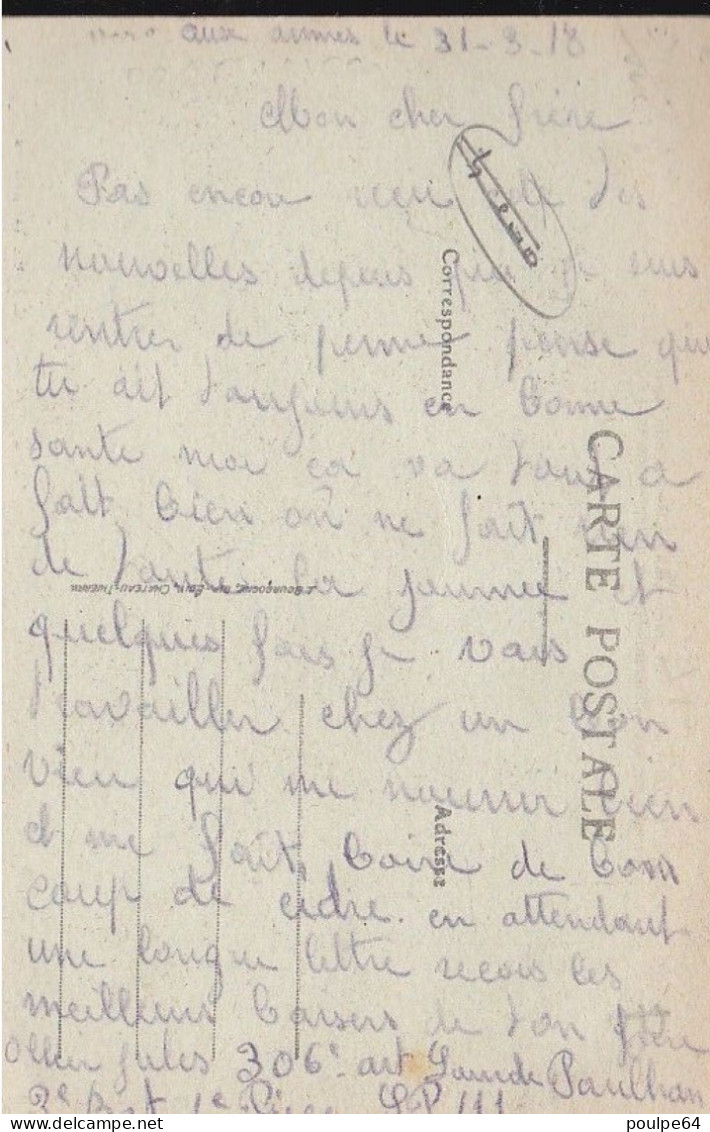 aux armes le 31-3-18
Mon cher frère
Pas encou rien des
nouvelles depuis que je suis
rentrer de perme pense que
tu ait toujours en bonne
sante moi ca va tout a
fait bien on ne fait rien
de toute la journee et
quelques fois je vais
travailler chez un bon
vieu qui me nourrir bien
et me fait boire de bon
coup de cidre en attendant
une longue lettre recois les
meilleurs baisers de ton frère
Ollier Jules 306e art Lourde Paulhan
3e 1e Pièce SP 111
Correspondance
CARTE POSTALE
Adresse
CHATEAU-THIERRY
poulpe64